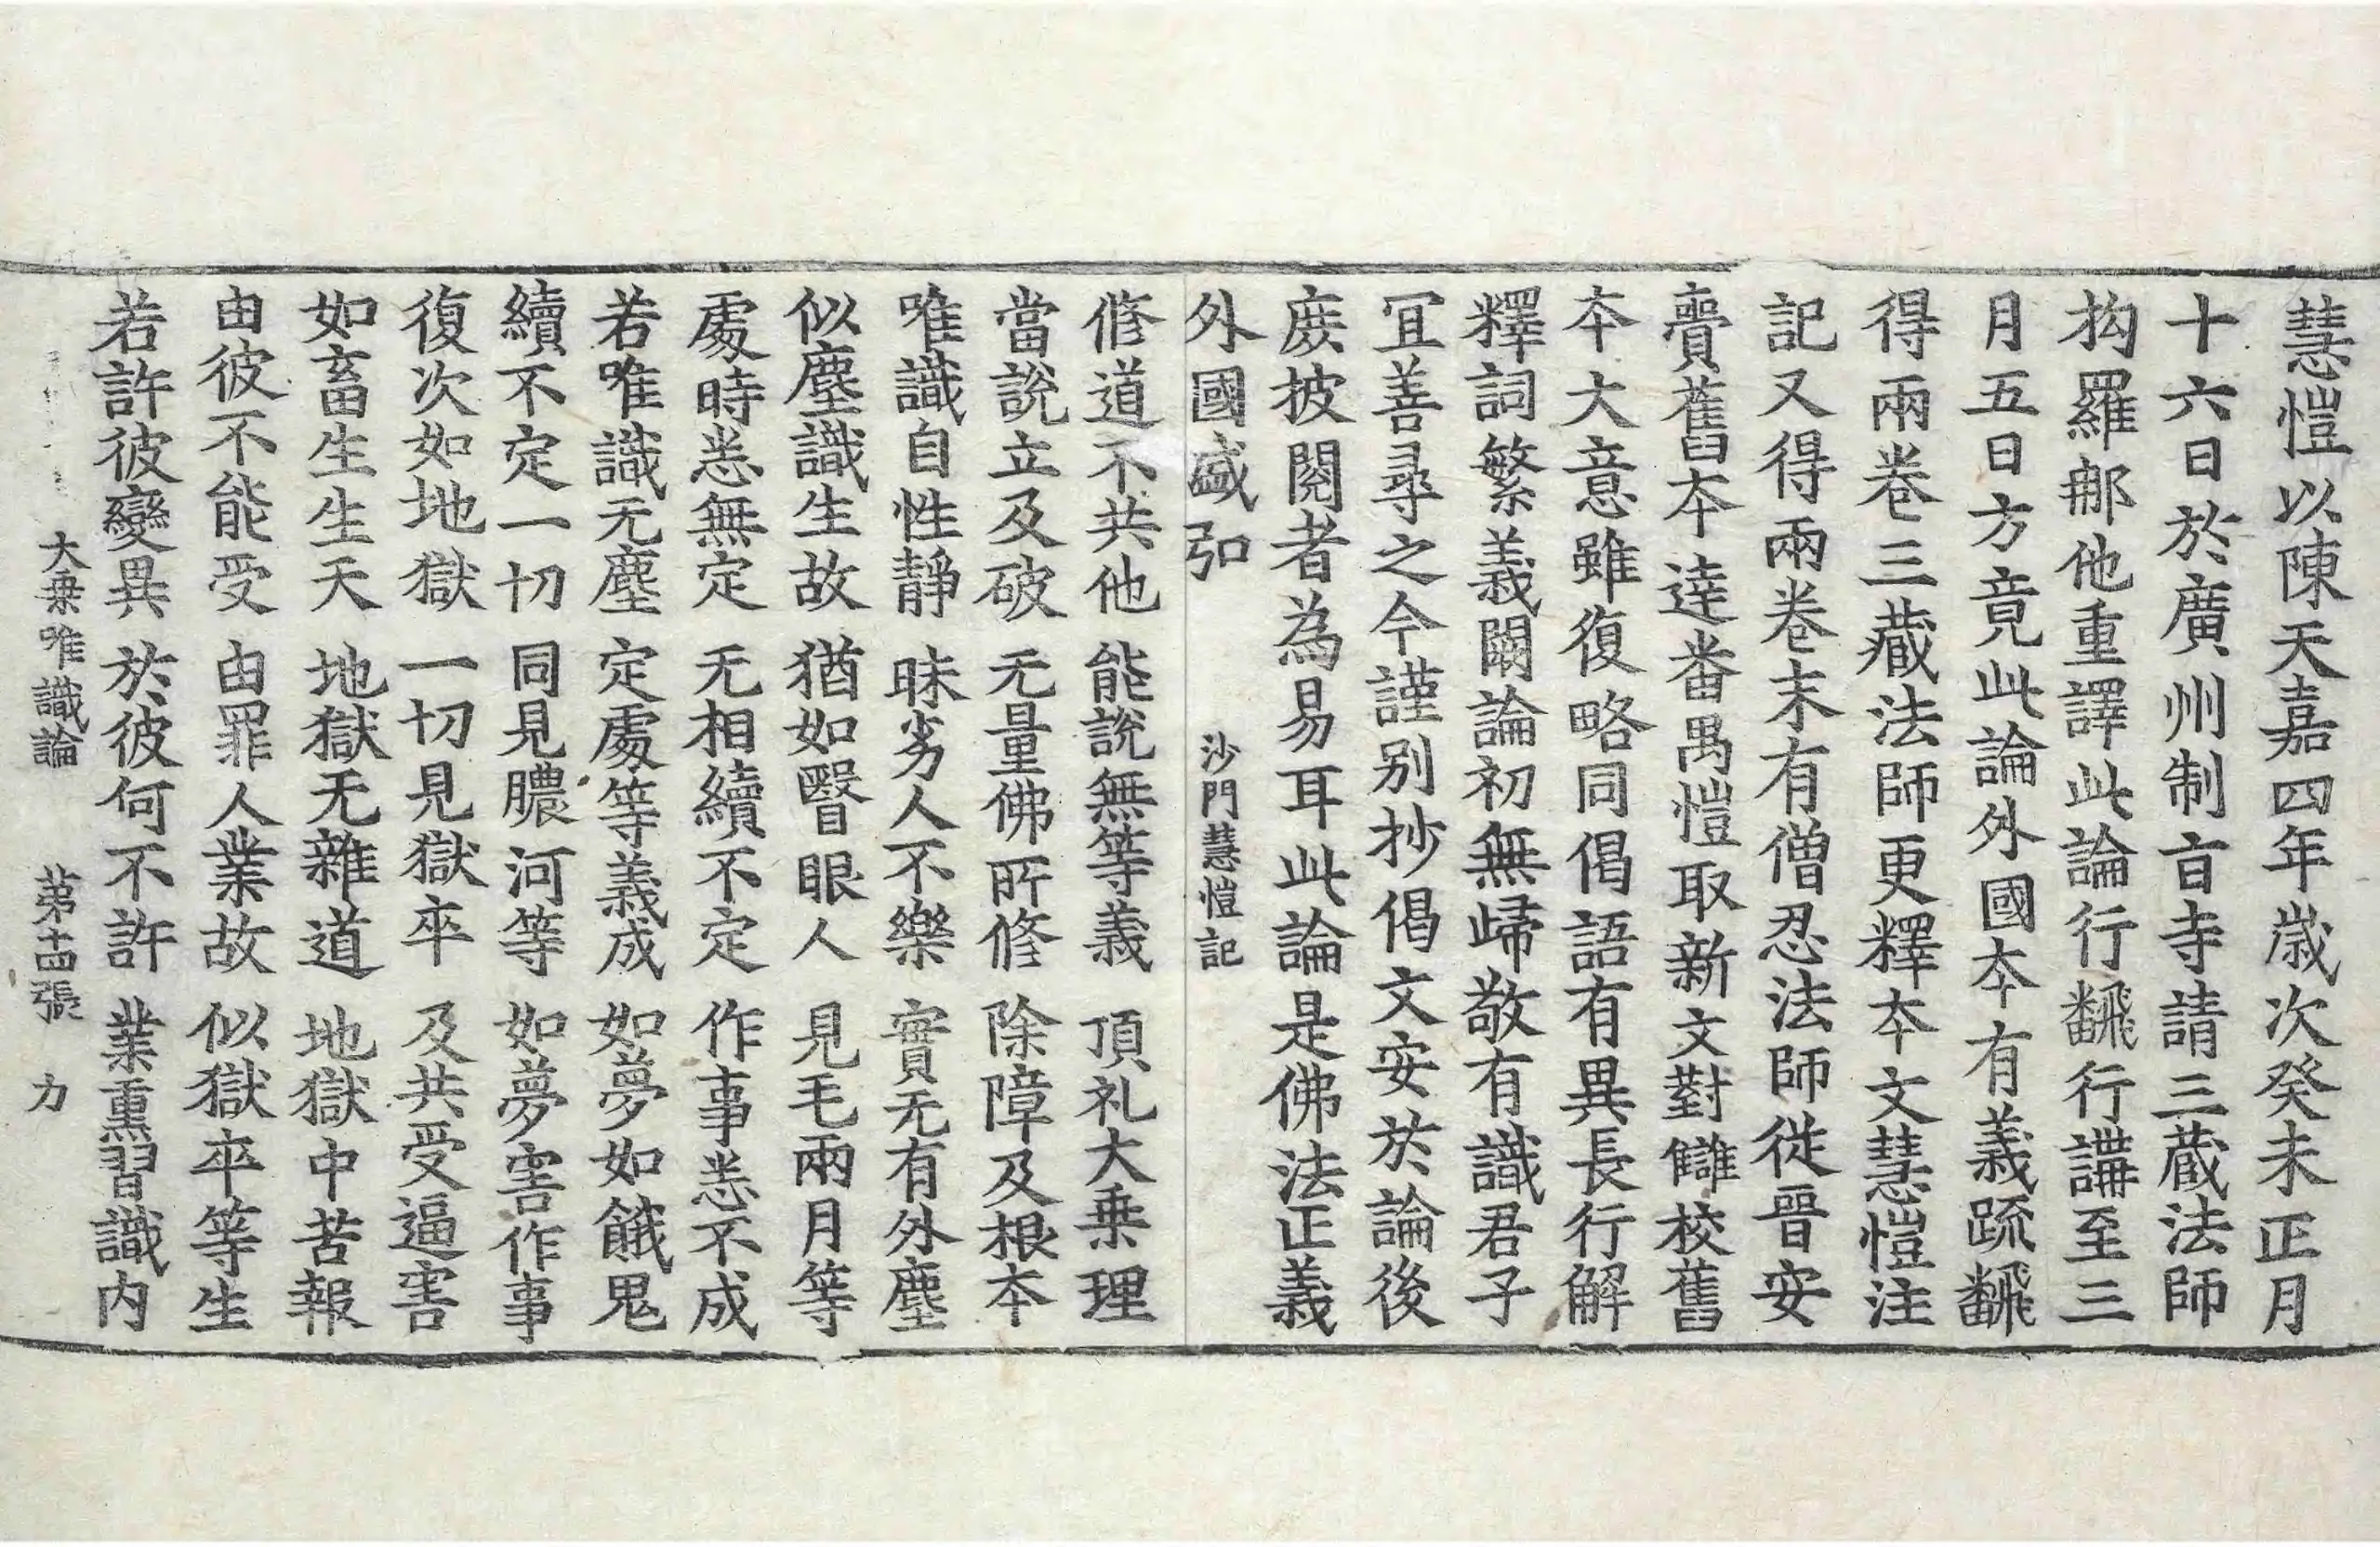 慧愷以陳天嘉四年歲次癸未正月
十六日於廣州制㫖寺請三藏法師
抅羅𨙻他重譯此論行飜行講至三
月五日方竟此論外國夲有義䟽飜
得兩卷三藏法師更釋夲文慧愷注
記又得兩卷末有僧忍法師従晉安
賷舊夲達番禺愷取新文對讎校舊
夲大意雖復略同偈語有異長行解
釋詞繁義闕論初無歸敬有識君子
冝善尋之今謹別抄偈文安於論後
庻披閱者為易耳此論是佛法正義
外國盛弘 沙門慧愷記
修道不共他 能說無等義 頂礼大乗理
當說立及破 无量佛所修 除障及根夲
唯識自性靜 昧劣人不樂 實无有外塵
似塵識生故 猶如瞖眼人 見毛兩月等
處時悉無定 无相續不定 作事悉不成
若唯識无塵 定處等義成 如夢如餓鬼
續不定一切 同見膿河等 如夢害作事
復次如地獄 一切見獄卒 及共受逼害
如畜生生天 地獄无雜道 地獄中苦報
由彼不能受 由罪人業故 似獄卒等生
若許彼變異 於彼何不許 業熏習識内
大乗唯識論 第十四張 力